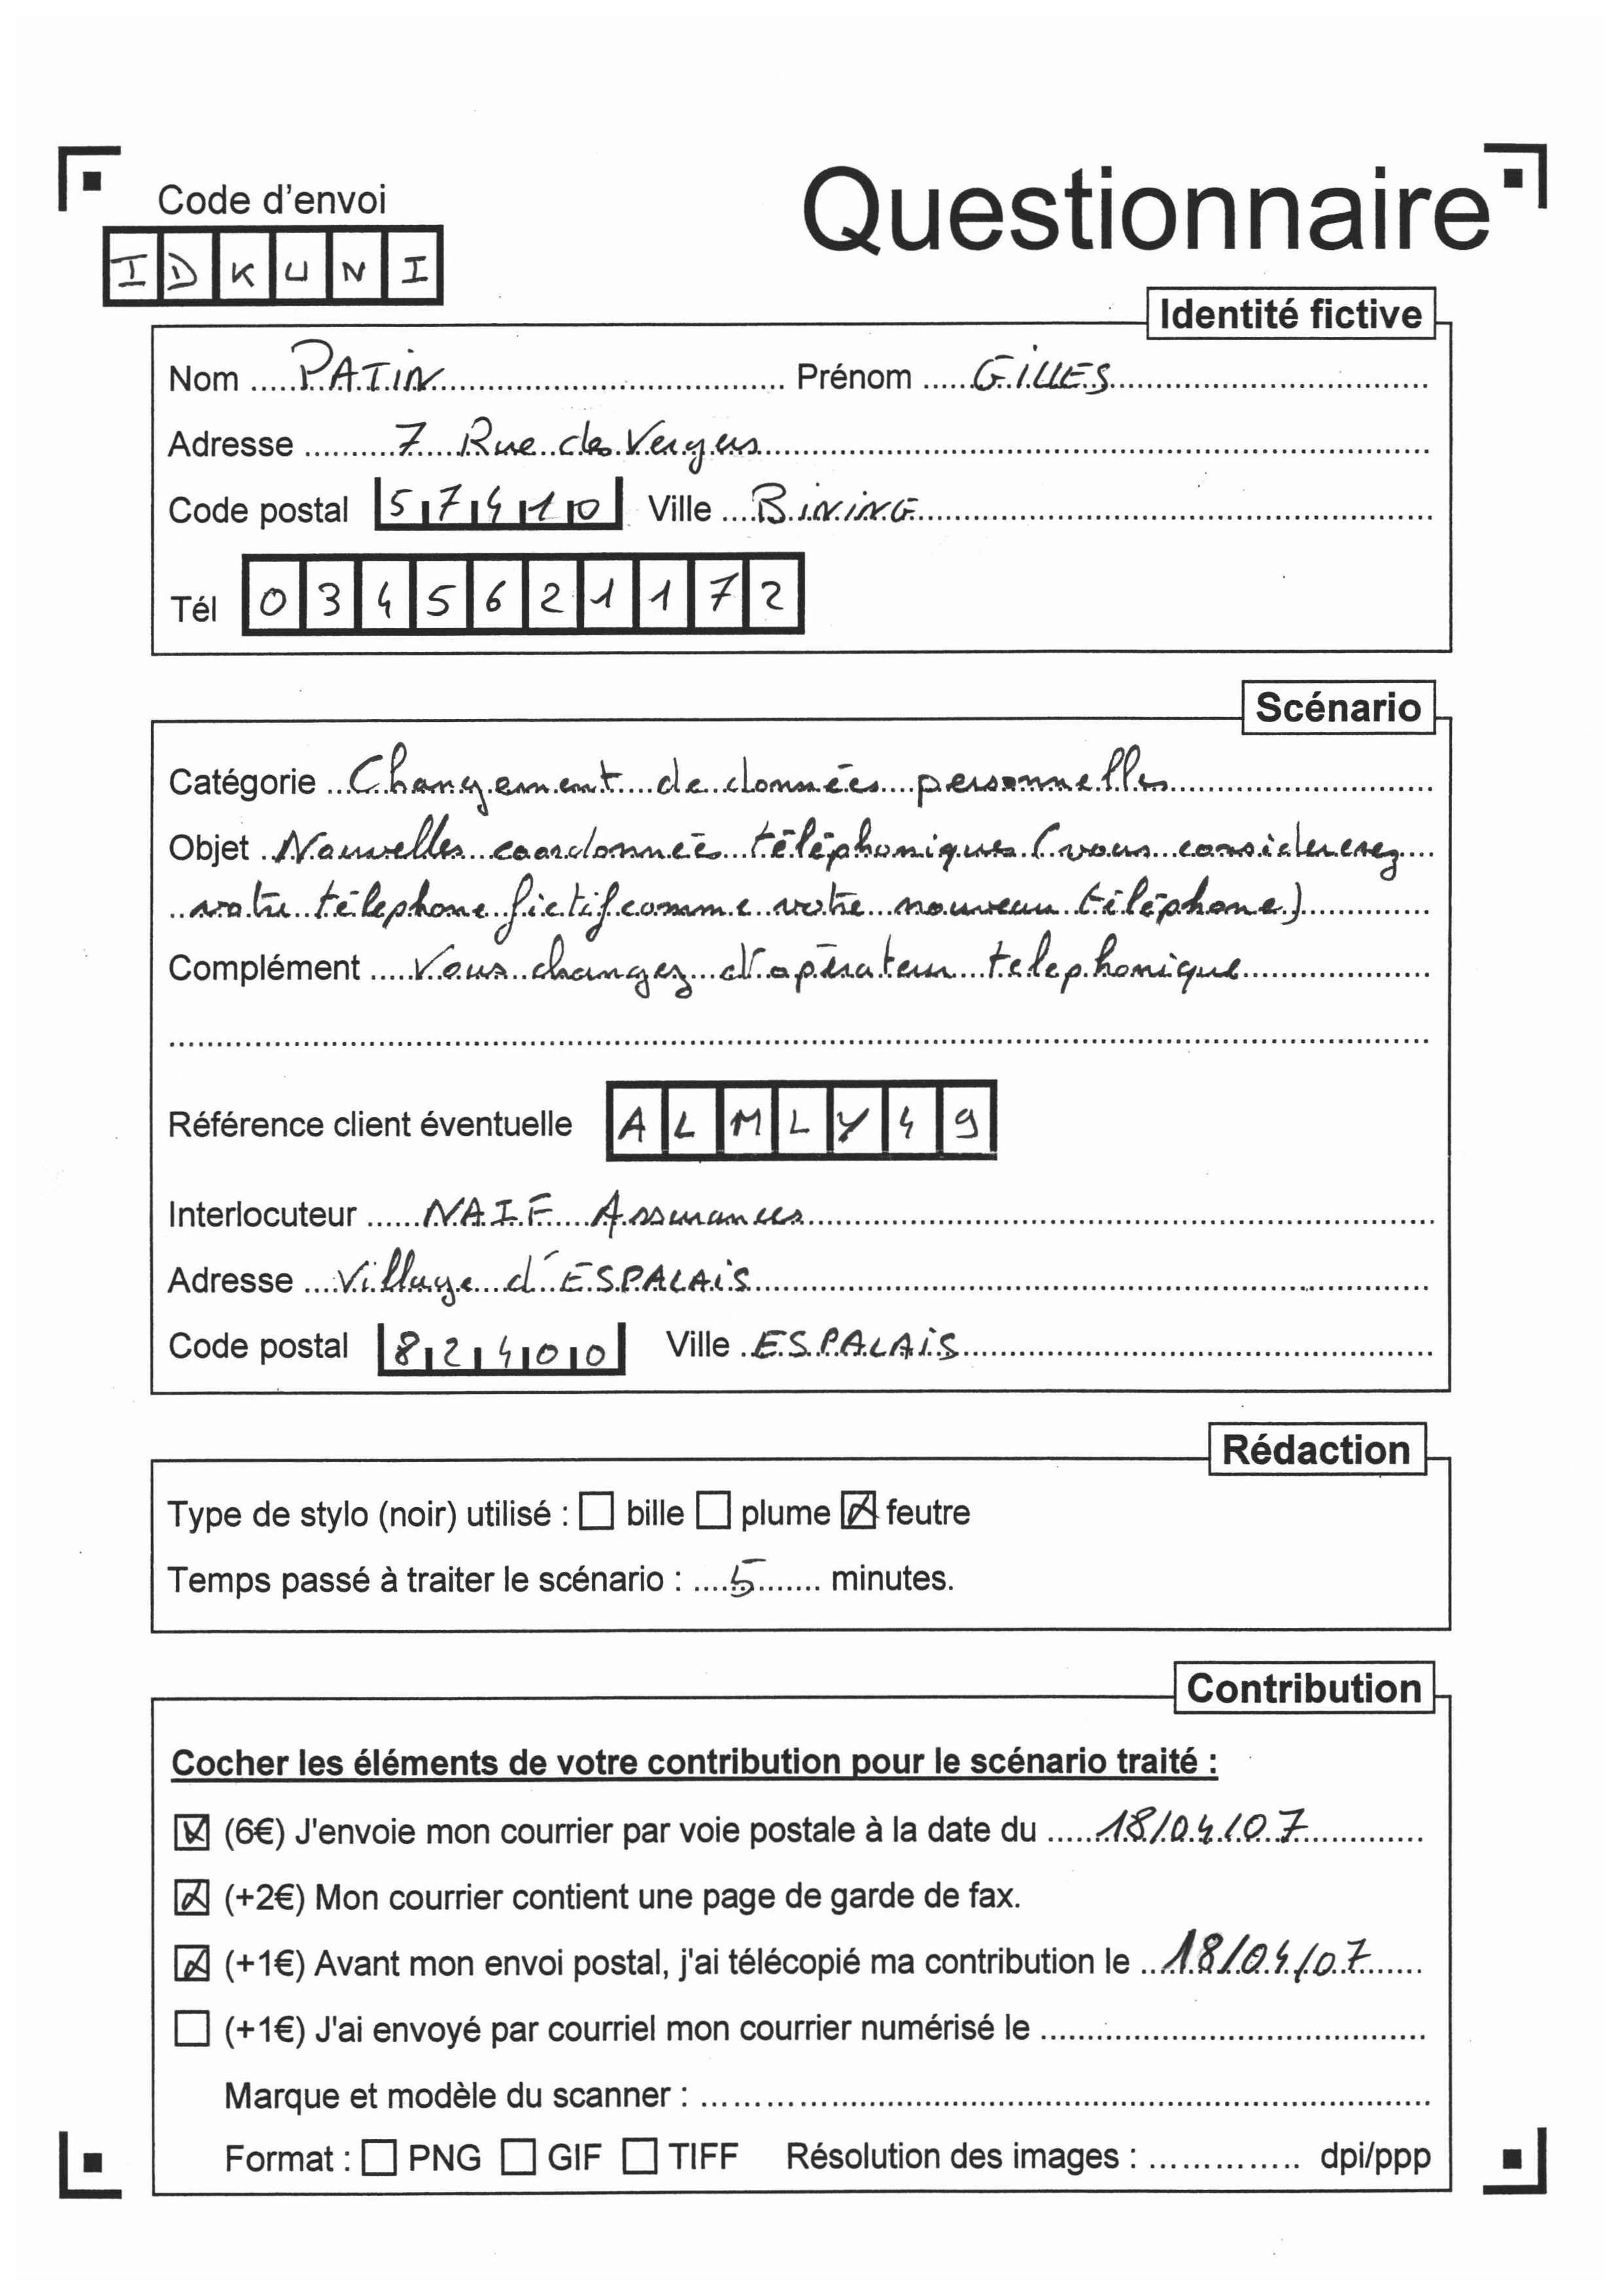 Code d'envoi
Questionnaire
IDKUNI
Identité fictive
Nom PATIN Prénom GILLES
Adresse 7 Rue des Vergers
Code postal 57410 Ville BINING
Tél 0345621172
Scénario
Catégorie Changement de données personnelles
Objet Nouvelles coordonnées téléphoniques (vous considererez
votre téléphone fictif comme votre nouveau téléphone)
Complément Vous changez d'opérateur telephonique
Référence client éventuelle ALMLY49
Interlocuteur NAIF Assurances
Adresse Village d'ESPALAIS
Code postal 82400 Ville ESPALAIS
Rédaction
Type de stylo (noir) utilisé : bille plume feutre
Temps passé à traiter le scénario : 5 minutes.
Contribution
Cocher les éléments de votre contribution pour le scénario traité :
(6€) J'envoie mon courrier par voie postale à la date du 18/04/07
(+2€) Mon courrier contient une page de garde de fax.
(+1€) Avant mon envoi postal, j'ai télécopié ma contribution le 18/04/07
(+1€) J'ai envoyé par courriel mon courrier numérisé le
Marque et modèle du scanner :
Format : PNG GIF TIFF Résolution des images : dpi/ppp